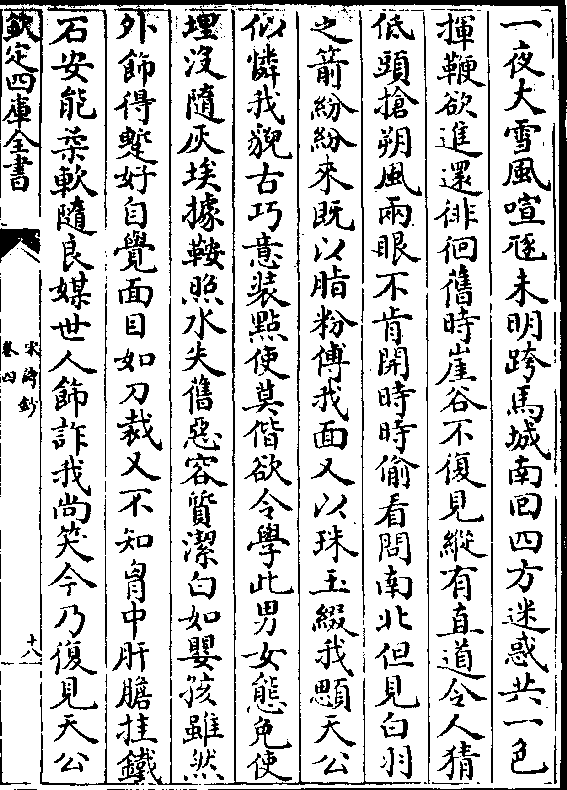 一夜大雪風喧豗未明跨馬城南回四方迷惑共一色
揮鞭欲進還徘徊舊時崖谷不復見縱有直道令人猜
低頭搶朔風兩眼不肯開時時偷看問南北但見白羽
之箭紛紛來既以脂粉傅我面又以珠玉綴我顋天公
似憐我貌古巧意裝點使莫偕欲令學此男女態免使
埋沒隨灰埃據鞍照水失舊惡容質潔白如嬰孩雖然
外飾得暫好自覺面目如刀裁又不知胷中肝膽挂鐵
石安能柔軟隨良媒世人飾詐我尚笑今乃復見天公
欽定四庫全書
宋詩鈔
卷四
十八